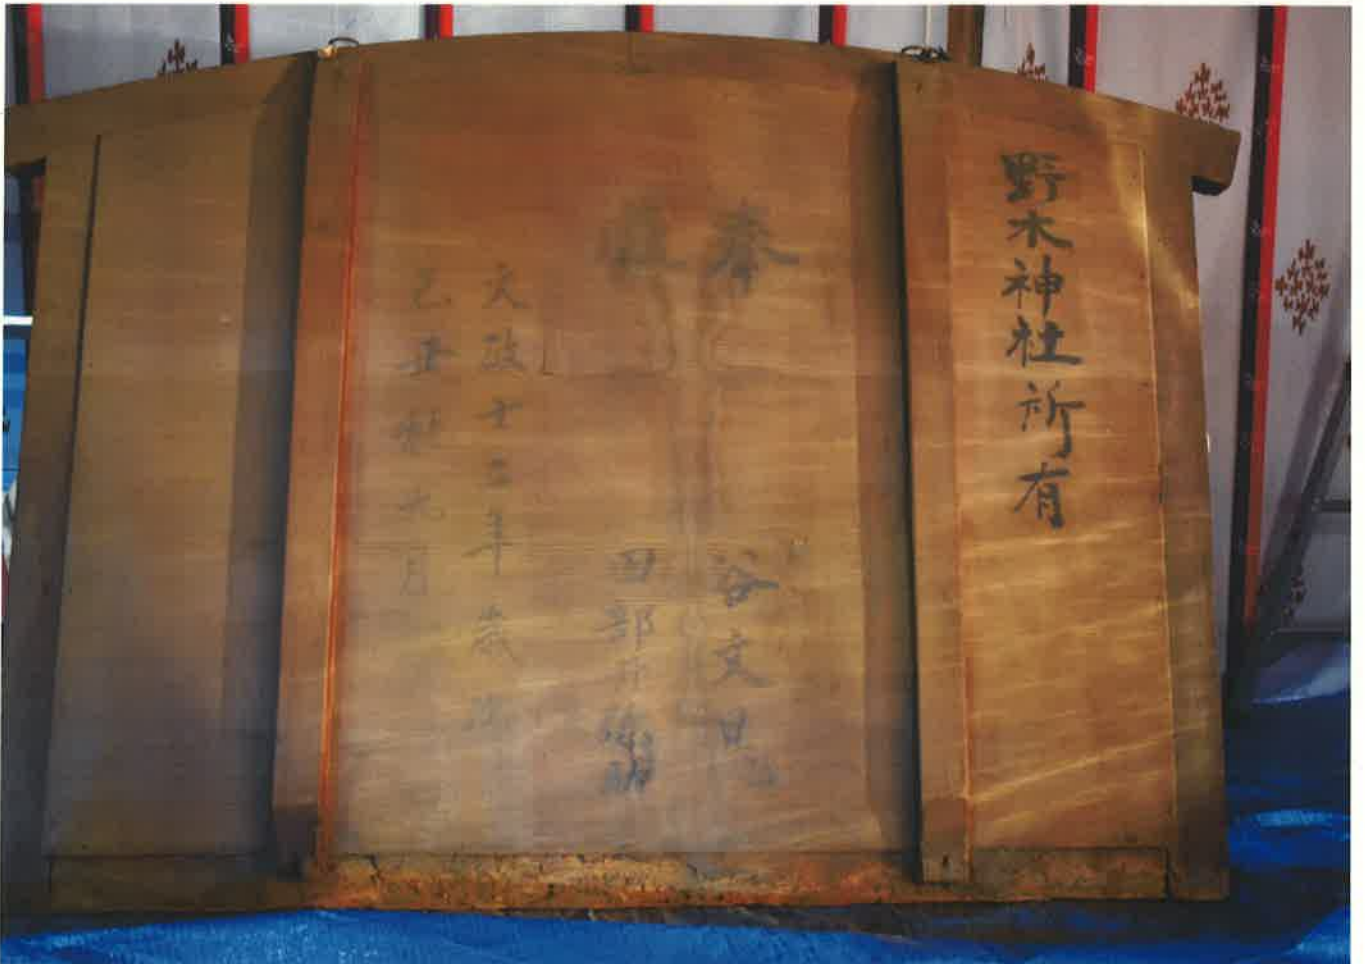 野木神社所有
奉
谷文晁
田部井
文政十二年歳次
己丑秋九月